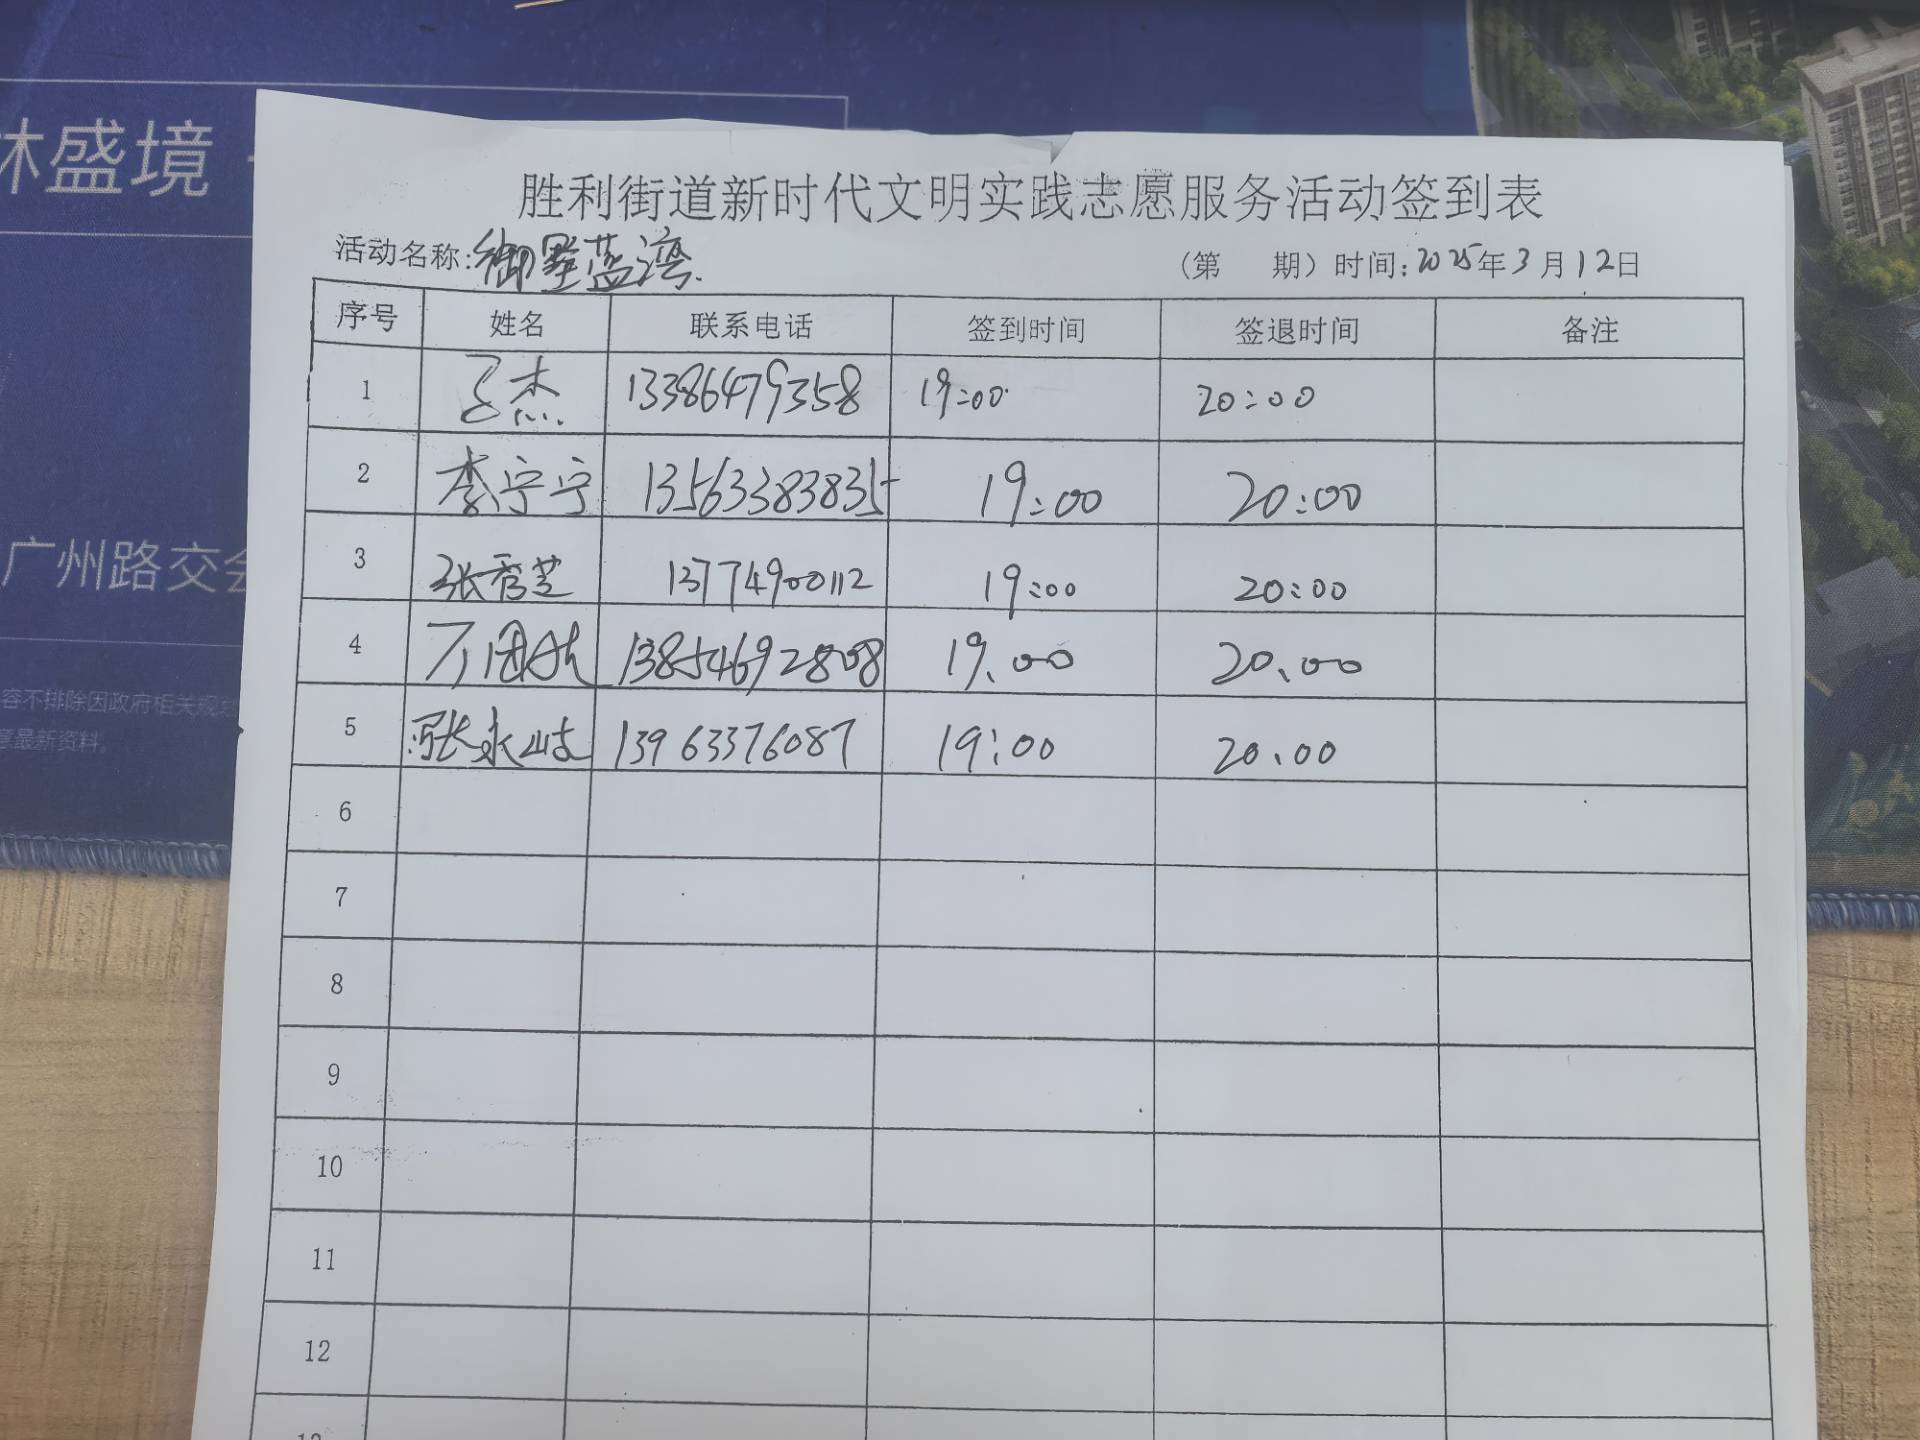 林盛境
广州路交会
容不排除因政府相关规定
意最新资料。
胜利街道新时代文明实践志愿服务活动签到表
活动名称:御墅蓝湾.
(第 期) 时间:2025年3月12日
序号 姓名 联系电话 签到时间 签退时间 备注
1 杰 13386479358 19:00 20:00
2 李宁宁 13563383835 19:00 20:00
3 张秀芝 13774900112 19:00 20:00
4 13854692808 19.00 20.00
5 张永岐 13963376087 19:00 20.00
6
7
8
9
10
11
12